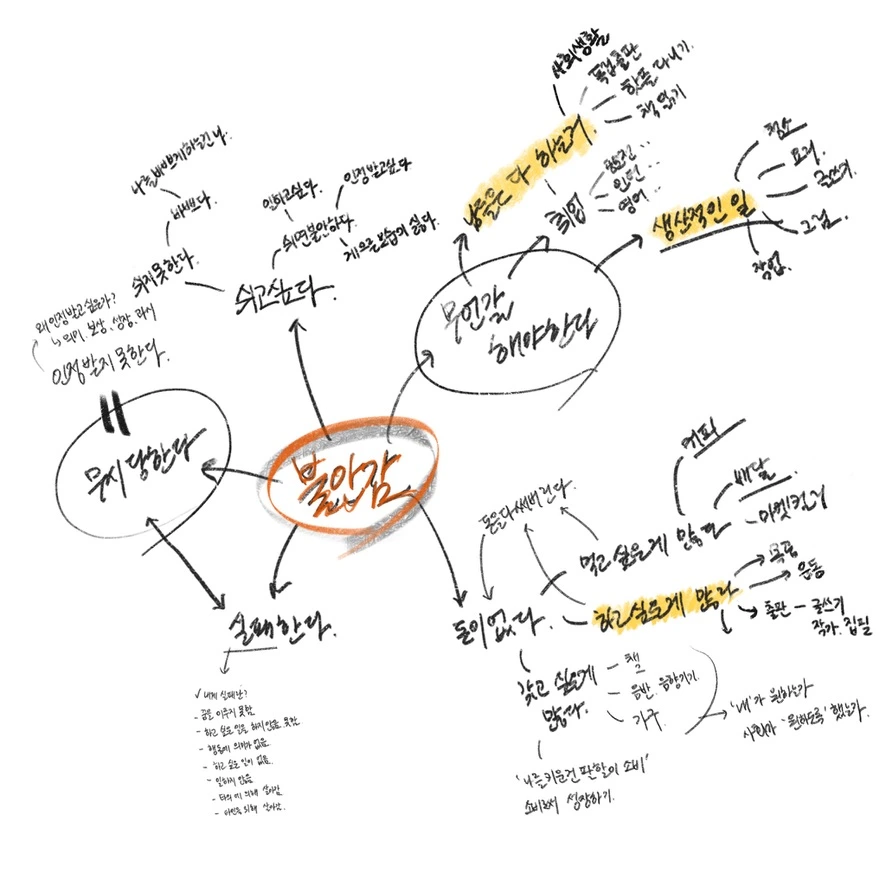 불안감
무언갈
해야한다
남들은 다 하는거.
사회생활
독립출판
핫플 다니기.
책 읽기
취업
인턴 ··
영어 ··
생산적인 일
청소
요리.
글쓰기.
그림.
작업.
쉬고싶다.
쉬면불안하다.
일하고싶다.
인정받고싶다
게으른 모습이 싫다.
쉬지못한다.
바쁘다.
나를 바쁘게하는건 나.
무시당한다
인정받지 못한다.
왜 인정받고 싶은가?
의미. 보상. 성장. 과시
실패한다.
✓ 내게 실패란?
- 꿈을 이루지 못함
- 하고 싶은 일을 하지 않음. 못함
- 행동에 의미가 없음
- 하고 싶은 일이 없음.
- 일하지 않음
- 타의에 의해 살아감
- 타인을 위해 살아감.
돈이없다.
돈을다써버린다.
먹고 싶은게 많다
커피
배달.
- 마켓컬리
하고싶은게 많다
운동
출판 - 글쓰기
작가. 집필
갖고 싶은게
많다.
- 책
- 음반. 음향기기.
가구.
'나를키운건 팔할이 소비'
소비로써 성장하기.
'내'가 원하는가
사회가 '원하도록' 했는가.